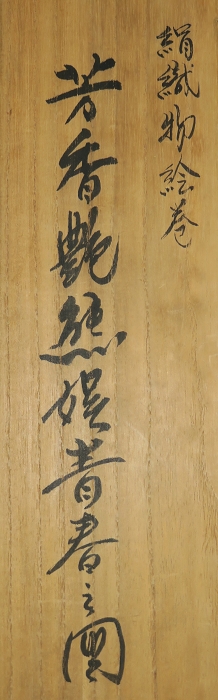 絹織物絵巻
芳香艶態娯青春之図